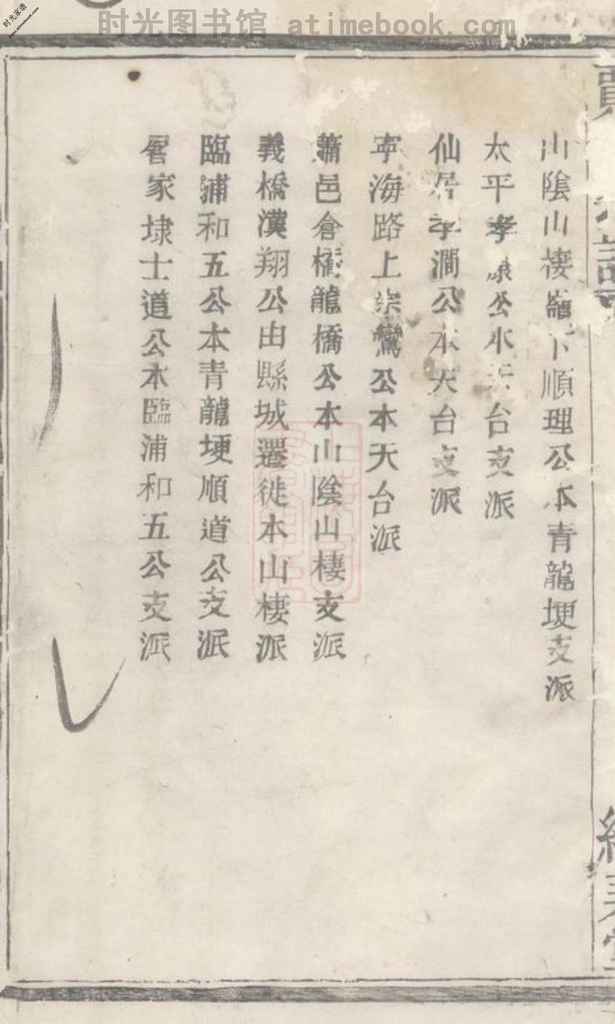 时光图书馆 atimebook.com
时光家谱
山陰山棲嶺下順理公本青龍埂支派
太平孝康公本天台支派
仙居孝澗公本天台支派
寧海路上崇鸞公本天台派
蕭邑倉橋龍橋公本山陰山棲支派
義橋漢翔公由縣城遷徙本山棲派
臨浦和五公本青龍埂順道公支派
屠家埭士道公本臨浦和五公支派